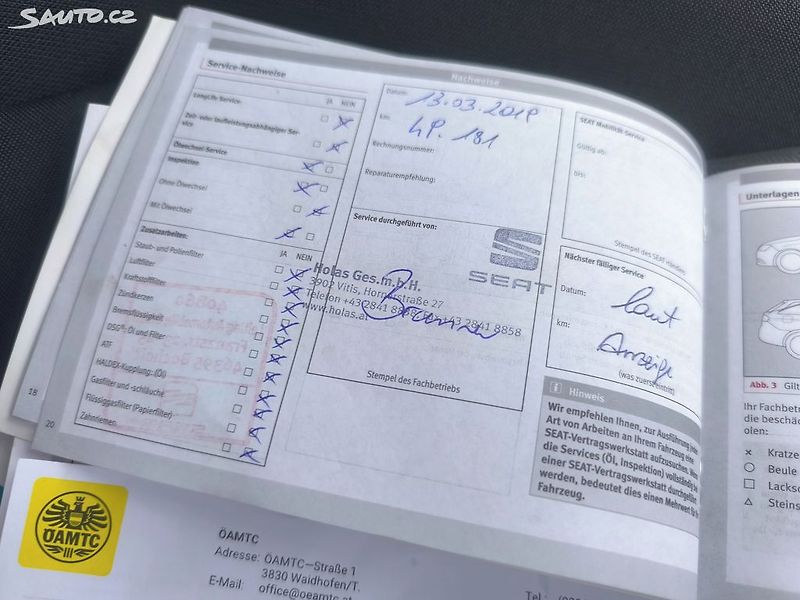 Sauto.cz
Service-Nachweise
Nachweise
JA NEIN
LongLife-Service:
Zeit- oder laufleistungsabhängiger Ser-
vice:
Ölwechsel-Service
Inspektion:
Ohne Ölwechsel
Mit Ölwechsel
Zusatzarbeiten:
JA NEIN
Staub- und Pollenfilter
Luftfilter
Kraftstofffilter
Zündkerzen
Bremsflüssigkeit
DSG®: Öl und Filter
ATF
HALDEX-Kupplung: (Öl)
Gasfilter und -schläuche
Flüssiggasfilter (Papierfilter)
Zahnriemen
Datum:
13.03.2019
km:
49.181
Rechnungsnummer:
Reparaturempfehlung:
Service durchgeführt von:
SEAT
Holas Ges.m.b.H.
3902 Vitis, Hornerstraße 27
Telefon +43 2841 8858, +43 2841 8858
www.holas.at
Stempel des Fachbetriebs
SEAT Mobilität-Service
Gültig ab:
bis:
Stempel des SEAT Händlers
Nächster fälliger Service
Datum:
laut
km:
Anzeige
(was zuerst eintritt)
i Hinweis
Wir empfehlen Ihnen, zur Ausführung jeder
Art von Arbeiten an Ihrem Fahrzeug eine
SEAT-Vertragswerkstatt aufzusuchen. Wenn
die Services (Öl, Inspektion) vollständig bei
einer SEAT-Vertragswerkstatt durchgeführt
werden, bedeutet dies einen Mehrwert für Ihr
Fahrzeug.
18
20
Unterlagen
Abb. 3 Gilt
Ihr Fachbet
die beschä
olen:
× Kratze
○ Beule
□ Lacks
△ Steins
ÖAMTC
ÖAMTC
Adresse: ÖAMTC–Straße 1
3830 Waidhofen/T.
E-Mail: office@oeamtc.at
Tel.: